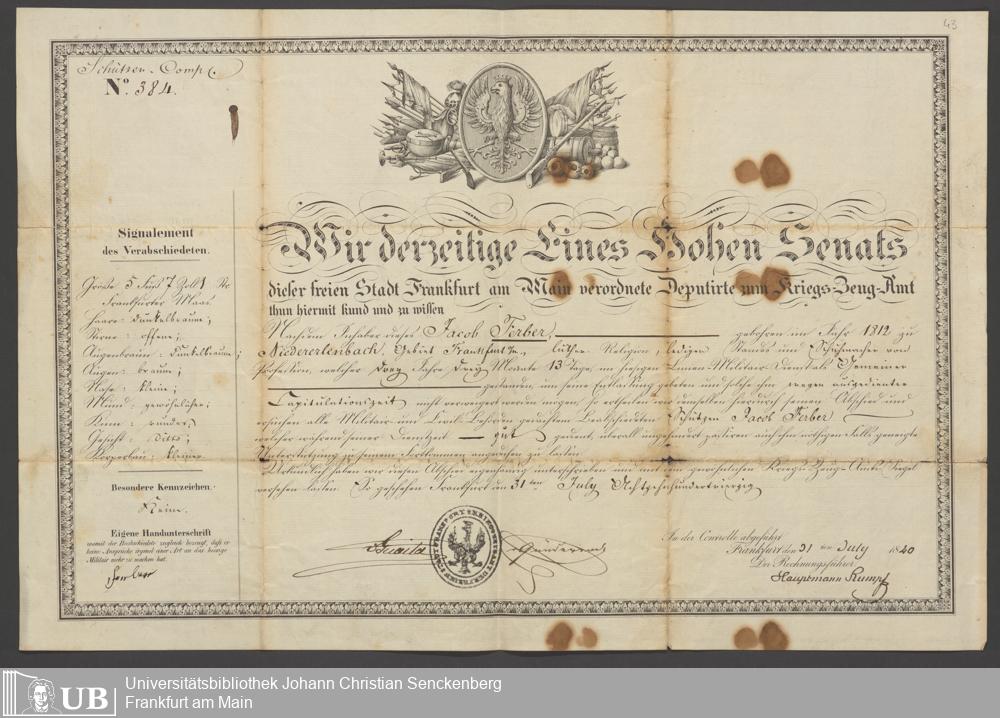 43
Schützen-Comp.
No. 384.
Signalement
des Verabschiedeten.
Größe 5 Fuß 7 Zoll
Frankfurter Maas
Haare: dunkelbraun;
Stirne: offene;
Augenbraun: dunkelbraune;
Augen: braun;
Nase: kleine;
Mund: gewöhnlicher;
Kinn: rundes;
Gesicht: ditto;
Körperbau: kleiner.
Besondere Kennzeichen.
Keine.
Eigene Handunterschrift
womit der Verabschiedete zugleich bezeugt, daß er
keine Ansprüche irgend einer Art an das hiesige
Militair mehr zu machen hat.
Ferber
Wir derzeitige Eines Hohen Senats
dieser freien Stadt Frankfurt am Main verordnete Deputirte zum Kriegs-Zeug-Amt
thun hiermit kund und zu wissen
Nachdem Inhaber dieses Jacob Ferber, gebohren im Jahr 1812 zu
Niedererlenbach, Gebiet Frankfurt, luther. Religion, ledigen Standes und Schuhmacher von
Profession, welcher Drey Jahre Drey Monate 13 Tage, im hiesigen Linien-Militair-Dienst als Gemeiner
gestanden, um seine Entlassung gebeten und solche ihm wegen ausgedienter
Capitulationszeit nicht verweigert werden mögen, so ertheilen wir demselben hierdurch seinen Abschied und
ersuchen alle Militair- und Civil-Behörden gedachten Verabschiedeten Schützen Jacob Ferber
welcher während seiner Dienstzeit gut gedient, überall ungehindert passiren auch ihm nöthigen Falls geneigte
Unterstützung zu seinem Fortkommen angedeihen zu lassen.
Urkundlich haben wir diesen Abschied eigenhändig unterschrieben und mit dem gewöhnlichen Kriegs-Zeug-Amts Siegel
versehen lassen. So geschehen Frankfurt den 31ten July Achtzehnhundertvierzig
In der Controlle abgeführt
Frankfurt den 31ten July 1840
Der Rechnungsführer.
Hauptmann Rumpf
UB
Universitätsbibliothek Johann Christian Senckenberg
Frankfurt am Main